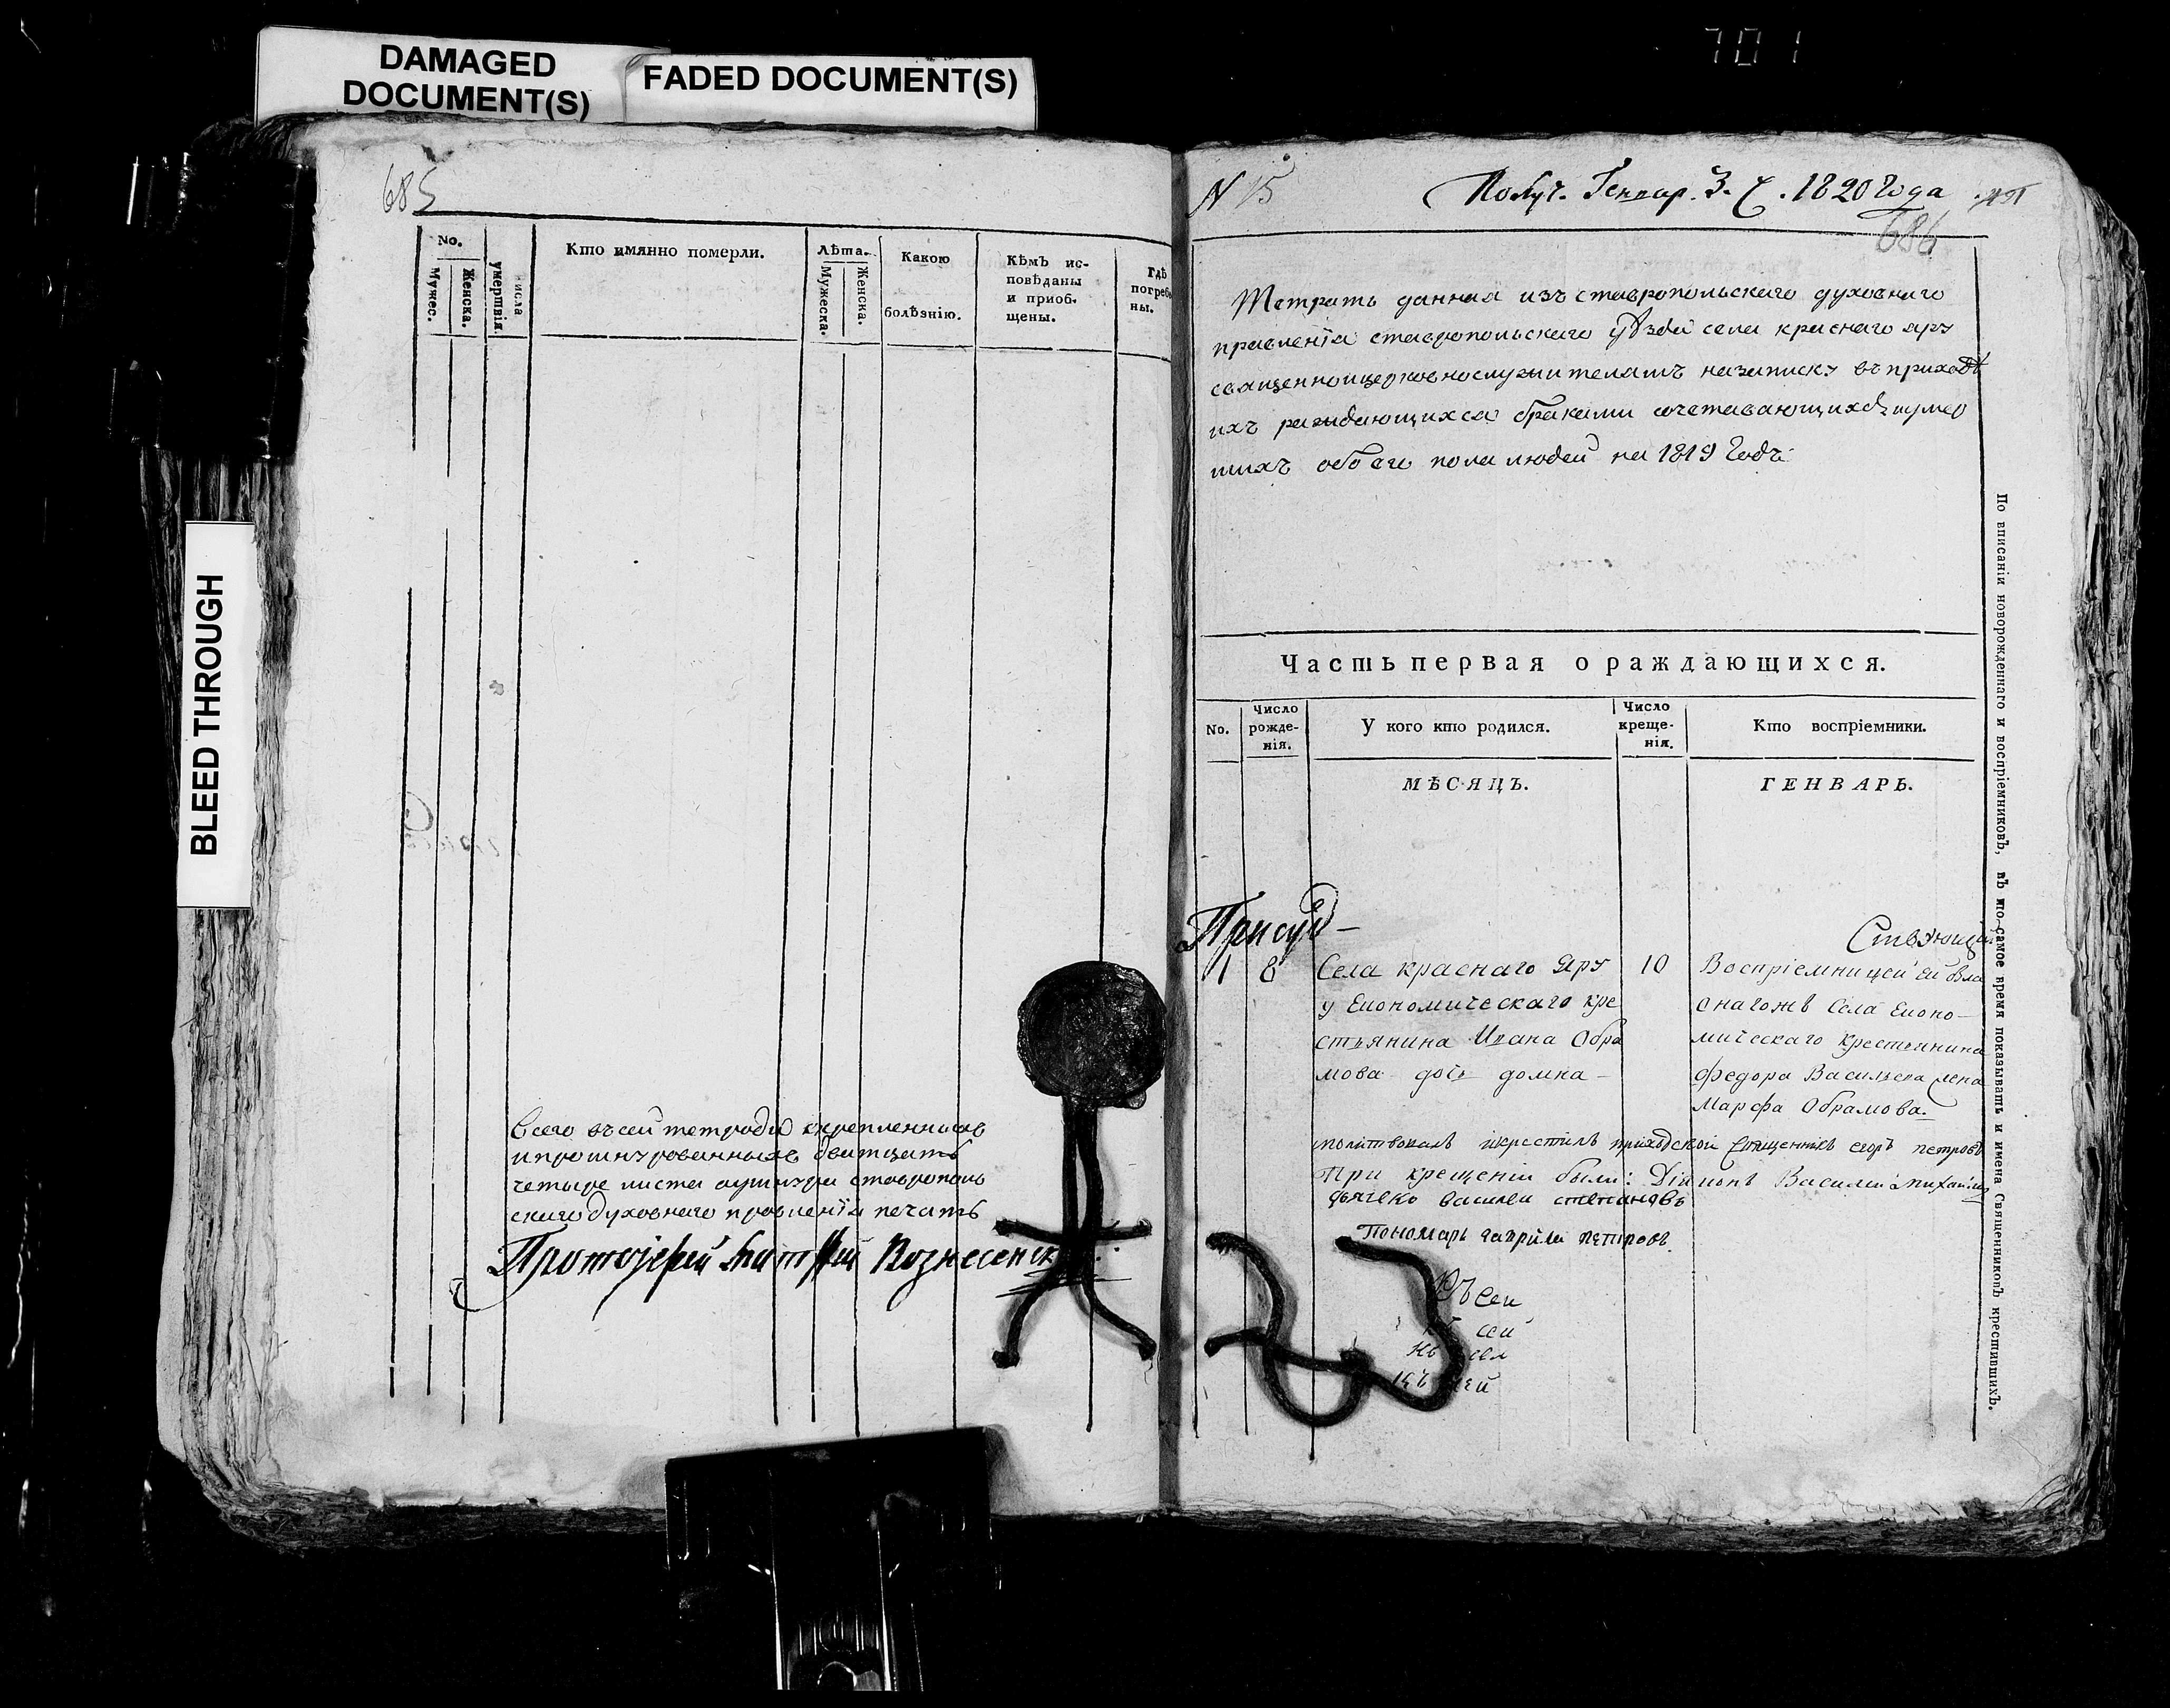 701
DAMAGED
DOCUMENT(S)
FADED DOCUMENT(S)
BLEED THROUGH
685
No.
Мужес.
Женска.
числа
умертвія.
Кто имянно померли.
Лѣта.
Мужеска.
Женска.
Какою
болѣзнію.
Кѣмъ ис-
повѣданы
и приоб-
щены.
Гдѣ
погребе
ны.
Всего въ сей тетради скрепленныхъ
и прошнурованныхъ дватцать
четыре листа оушнура ставрополь
скаго духовнаго правленія печать
Протоіерей Матфѣй Вознесенск
N 15
Получ. Генвар. 3. ч. 1820 Года
686
Тетрать данная изъ ставропольскаго духовнаго
правленія ставропольскаго уѣзда села краснаго яру
священноицерковнослужителямъ назаписку въ приходѣ
ихъ раждающихся браками сочетавающихся иумер
шихъ обоего пола людей на 1819 Годъ
Часть первая о раждающихся.
No.
Число
рожде-
нія.
У кого кто родился.
Число
креще-
нія.
Кто воспріемники.
МѢСЯЦЪ. ГЕНВАРЬ.
1 8 Села краснаго Яру 10 Воспріемницей ей была
у Економическаго кре онагожъ Села Еконо-
стьянина Ивана Обра мическаго Крестьянина
мова дочь домна- федора Васильева жена
Марфа Обрамова.
молитвовалъ икрестилъ приходской Священникъ егоръ петровъ
При крещеніи были: Діаконъ Василий Михайлов
дьячекъ василеи степановъ
Пономарь гаврила петровъ.
Въ сей
сей
сей
По вписаніи новорожденнаго и воспріемниковъ, въ то-самое время показывать и имена Священниковъ крестившихъ.